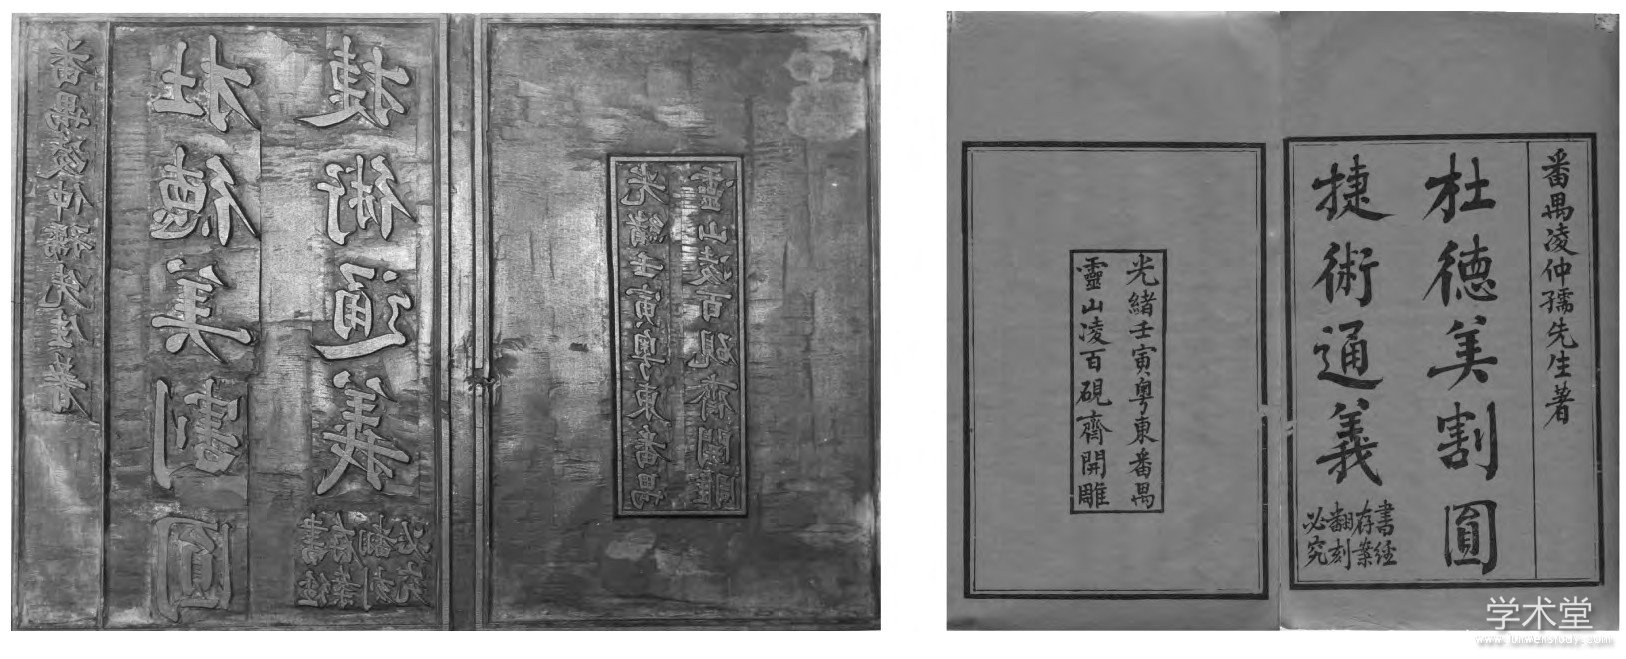 番禺凌仲孺先生著
杜德美割圓
捷術通義
書經
存案
翻刻
必究
光緒壬寅粵東番禺
靈山凌百硯齋開雕
番禺凌仲孺先生著
杜德美割圓
捷術通義
書經
存案
翻刻
必究
光緒壬寅粵東番禺
靈山凌百硯齋開雕
学术堂
www.lunwenstudy.com